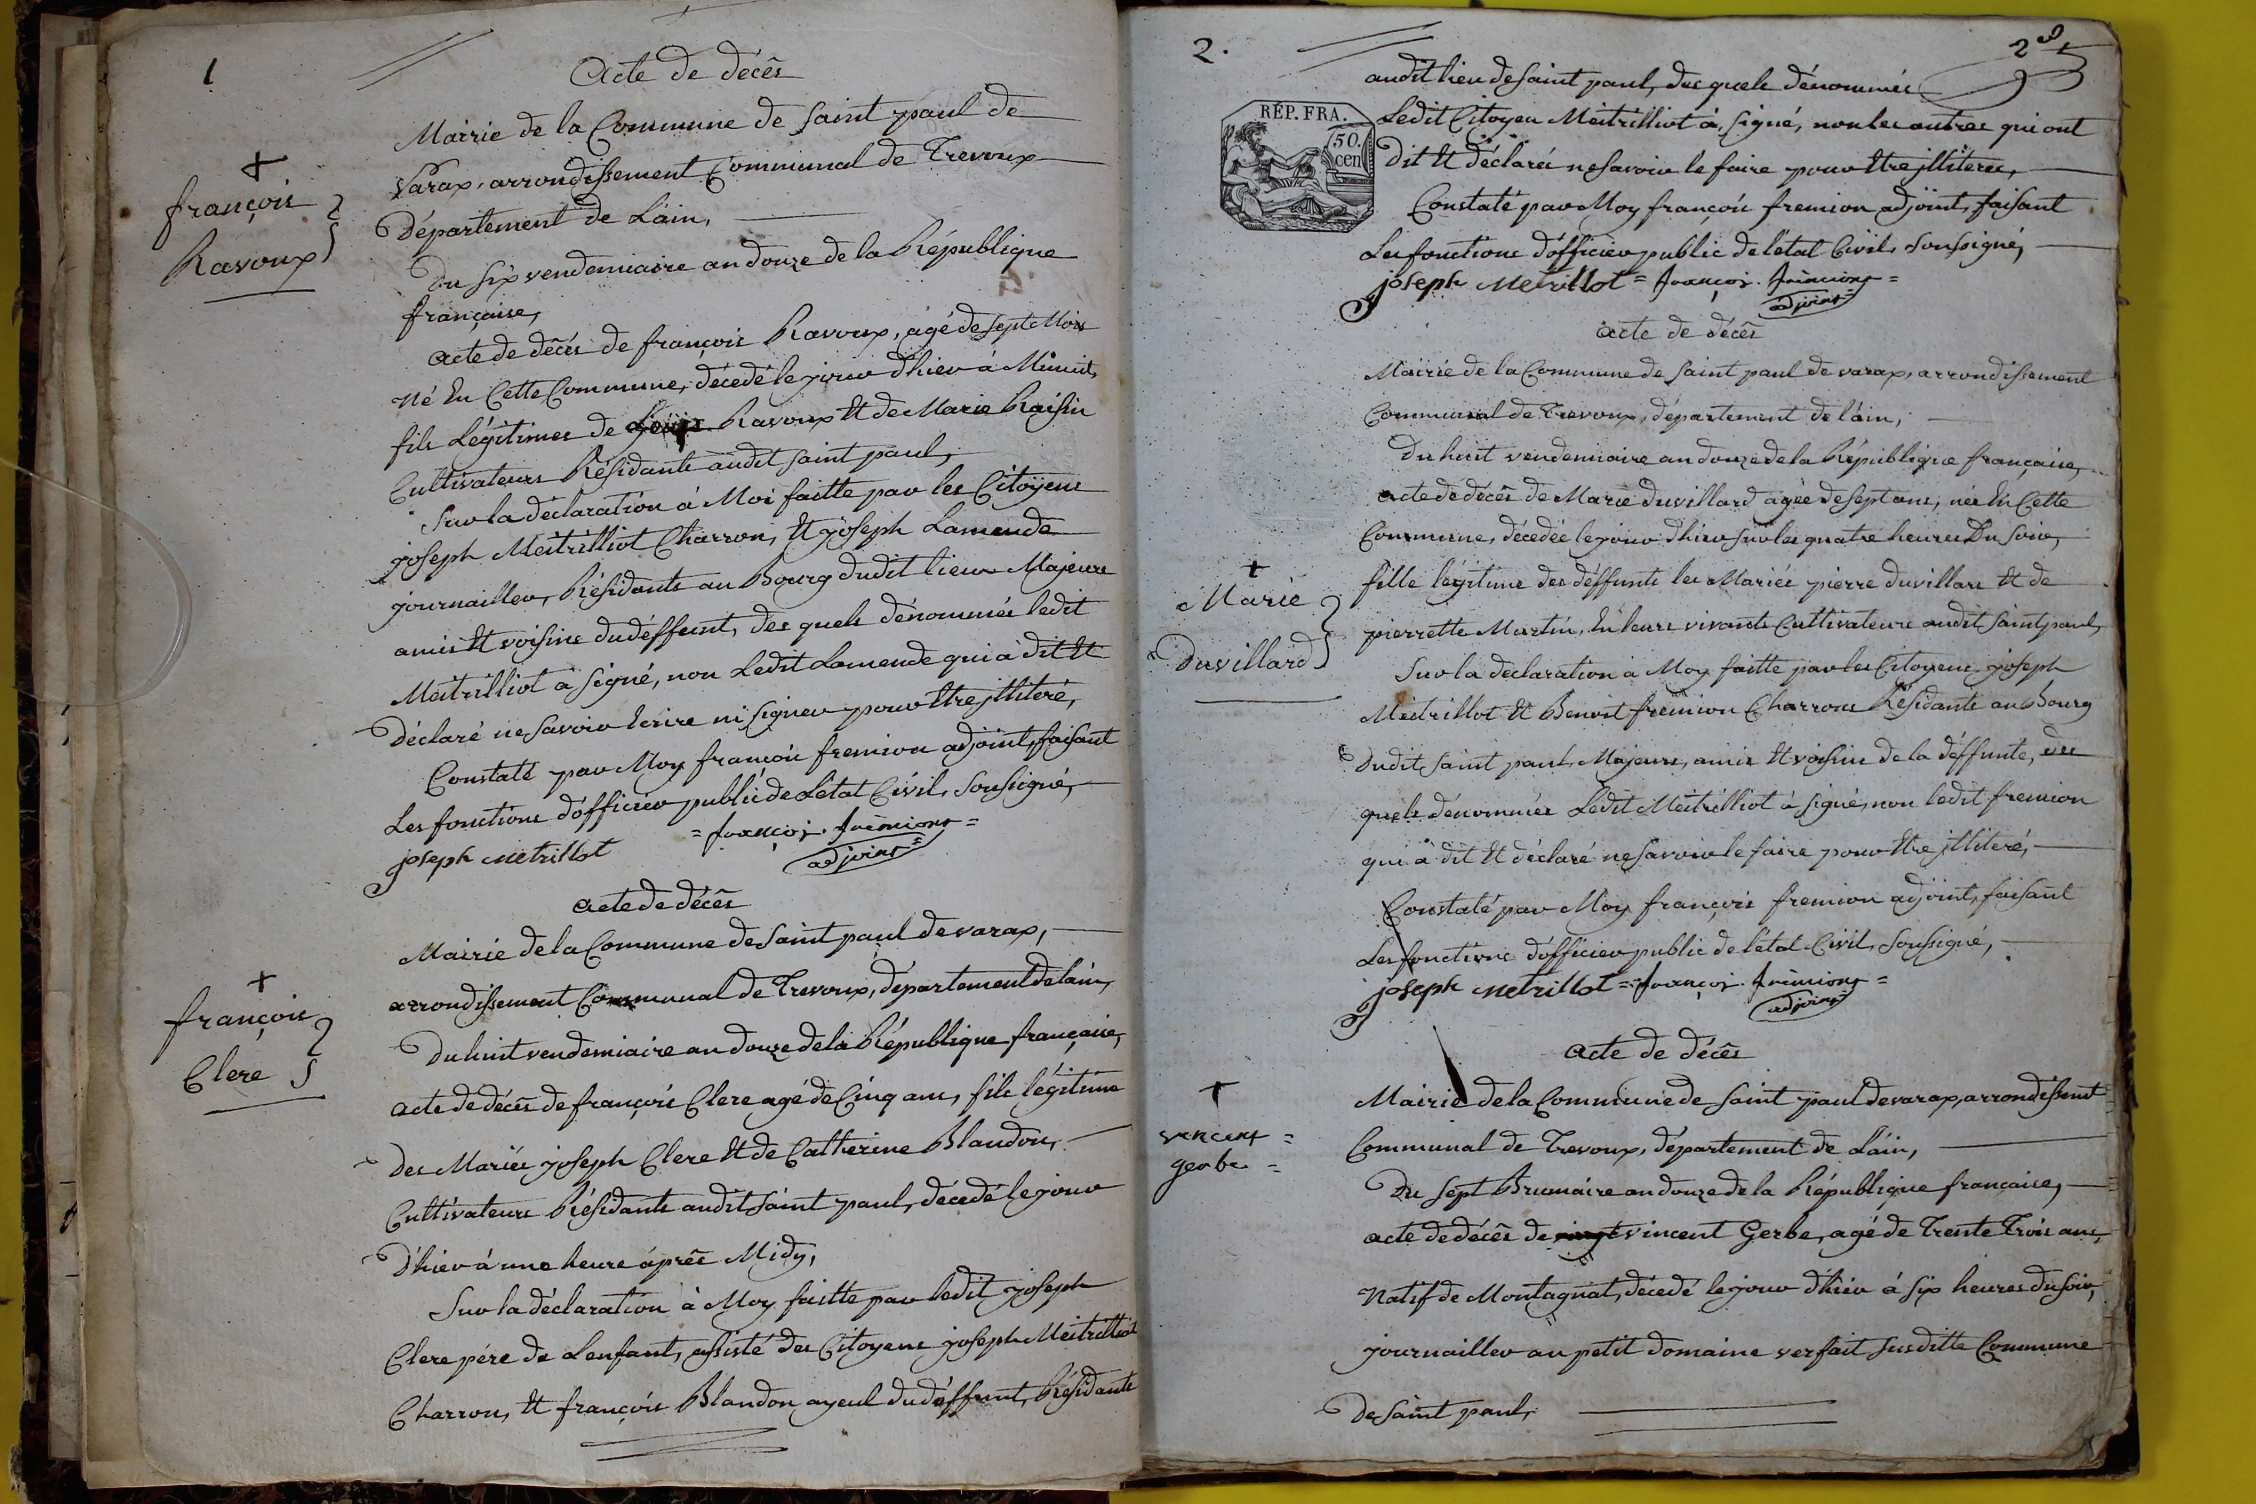 1
Acte de décês
Mairie de la Commune de saint paul de
Varax, arrondissement Communal de Trevoux
Département de L'ain,
Du six vendemiaire an douze de la République
française,
françois
Ravoux
acte de décés de françois Ravoux, agé de sept Mois
né En Cette Commune, décedé le jour d'hier à Minuit,
fils Légitimes de Louis Ravoux Et de Marie Raisin
Cultivateurs Résidants audit saint paul,
Sur la déclaration à Moi faitte par les Citoÿens
joseph Meitrilliot Charron, Et joseph Lamende
journaillier, Résidants au Bourg dudit lieu Majeurs
amis Et voisins du déffunt, des quels dénommés ledit
Meitrilliot à signé, non Ledit Lamende qui à dit Et
Déclaré ne savoir Ecrire ni signer pour Etre jlliteré,
Constaté par Moy françois fremion adjoint, faisant
Les fonctions d'officier public de Létat Civil, soussigné,
joseph metrillot = françois fremiont =
adjoint =
acte de décês
Mairie de la Commune de saint paul de varax,
arrondissement Communal de Trevoux, département de lain,
Du huit vendemiaire an douze de la République française,
françois
Clere
acte de décês de françois Clere agé de Cinq ans, fils légitime
des Mariés joseph Clere Et de Catherine Blandon,
Cultivateurs Résidants audit saint paul, décedé le jour
d'hier à une heure áprês Midy,
Sur la déclaration à Moy faitte par ledit joseph
Clere pére de Lenfant, assisté des Citoyens joseph Meitrilliot
Charron, Et françois Blandon ayeul du déffunt, Résidants
2.
audit lieu de saint paul, des quels dénommés
RÉP. FRA.
50.
cen
Ledit Citoyen Meitrilliot à signé, non les autres qui ont
dit Et déclaré ne savoir le faire pour Etre jlliterés,
Constaté par Moy françois fremion adjoint, faisant
Les fonctions d'officier public de l'état Civil, soussigné,
joseph metrillot = françois fremiont =
adjoint =
acte de décês
Mairie de la Commune de saint paul de varax, arrondissement
Communal de Trevoux, département de láin,
Du huit vendemiaire an douze de la République française,
acte de décês de Marie Duvillard agée de sept ans, née En Cette
Commune, décedée le jour d'hier sur les quatre heures Du soir,
Marie
Duvillard
fille légitime des déffunts les Mariés pierre duvillard Et de
pierrette Martin, En leurs vivants Cultivateurs audit saint paul,
Sur la declaration à Moy faitte par les Citoyens joseph
Meitrillot Et Benoit fremion Charrons Résidants au Bourg
Dudit saint paul, Majeurs, amis Et voisins de la déffunte, des
quels dénommés Ledit Meitrilliot à signé, non ledit fremion
qui à dit Et déclaré ne savoir le faire pour Etre jlliteré,
Constaté par Moy françois fremion adjoint, faisant
Les fonctions d'officier public de l'état Civil, soussigné,
joseph metrillot = françois fremiont =
adjoint =
acte de décês
Mairie de la Commune de saint paul de varax, arrondissement
Communal de Trevoux, département de Láin,
vincent =
gerbe =
Du sept Brumaire an douze de la République française,
acte de décês de vincent Gerbe, agé de Trente Trois ans,
Natif de Montagnat, décedé le jour d'hier à six heures du soir,
journaillier au petit domaine verfait susditte Commune
De saint paul,